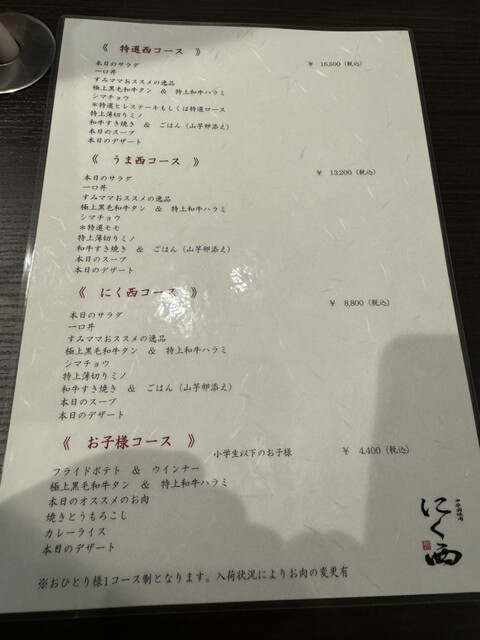 《 特選西コース 》
￥ 16,500（税込）
本日のサラダ
一口丼
すみママおススメの逸品
極上黒毛和牛タン ＆ 特上和牛ハラミ
シマチョウ
＊特選ヒレステーキもしくは特選ロース
特上薄切りミノ
和牛すき焼き ＆ ごはん（山芋卵添え）
本日のスープ
本日のデザート
《 うま西コース 》
￥ 13,200（税込）
本日のサラダ
一口丼
すみママおススメの逸品
極上黒毛和牛タン ＆ 特上和牛ハラミ
シマチョウ
＊特選モモ
特上薄切りミノ
和牛すき焼き ＆ ごはん（山芋卵添え）
本日のスープ
本日のデザート
《 にく西コース 》
￥ 8,800（税込）
本日のサラダ
一口丼
すみママおススメの逸品
極上黒毛和牛タン ＆ 特上和牛ハラミ
シマチョウ
特上薄切りミノ
和牛すき焼き ＆ ごはん（山芋卵添え）
本日のスープ
本日のデザート
《 お子様コース 》
小学生以下のお子様 ￥ 4,400（税込）
フライドポテト ＆ ウインナー
極上黒毛和牛タン ＆ 特上和牛ハラミ
本日のオススメのお肉
焼きとうもろこし
カレーライス
本日のデザート
にく西
※おひとり様1コース制となります。入荷状況によりお肉の変更有